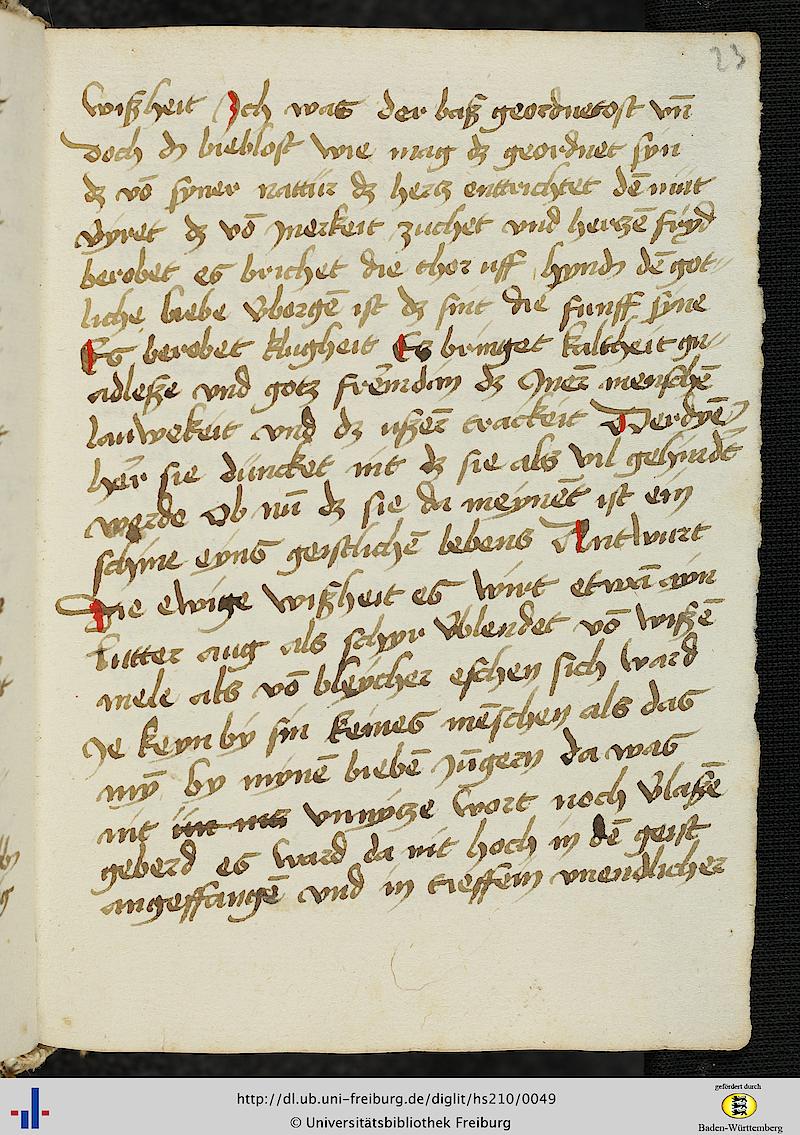 23
wißheit Ich was der baß geordnetost vñ
doch dz lieblost wie mag dz geordnet syn
dz võ syner nattur dz hertz enttrichtet dẽ mut
dz võ Inerkeit zuchet vnd hertzẽ fryd
berobet es brichet die thor uff hynd dẽ got-
liche liebe vborgẽ ist dz sint die funff syne
Es berobet klugheit Es bringet kaltheit gn-
adleße vnd gotz fremdin dz Iners menschẽ
lauwekeit vnd dz ußerz trackeit Der dyẽ
her sie duncket nit dz sie als vil gehindt
werde Ob nu dz sie da meynẽt ist ein
schine eyns geistlichẽ lebens Antwurt
Die ewige wißheit es wirt etwã ayn
lutter aug als schyr vblendet võ wißẽ
mele als võ bleycher eschen sich ward
Ie keyn by sin keines mẽschen als das
myn by mynẽ liebẽ Iũgern da was
nit vnnytze wort noch vlaßẽ
geberd es ward da nit hoch in dẽ geist
angeffangẽ vnd in tieffein vnendlicher
http://dl.ub.uni-freiburg.de/diglit/hs210/0049
© Universitätsbibliothek Freiburg
gefördert durch
Baden-Württemberg